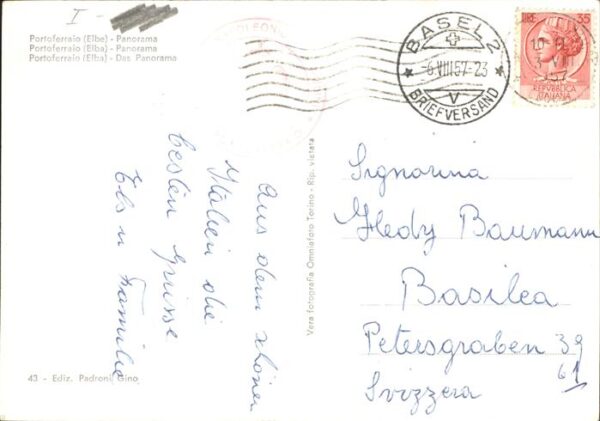 I -
Portoferraio (Elba) - Panorama
Portoferraio (Elba) - Panorama
Portoferraio (Elba) - Das Panorama
BASEL 2
-6.VIII.57-23
V
BRIEFVERSAND
LIRE 35
REPVBBLICA
ITALIANA
Aus dem schönen
Italien die
besten Grüsse
Els u Familie
Vera fotografia Omniafoto Torino - Rip. vietata
Signorina
Hedy Baumann
Basilea
Petersgraben 39
61
Svizzera
43 - Ediz. Padroni Gino